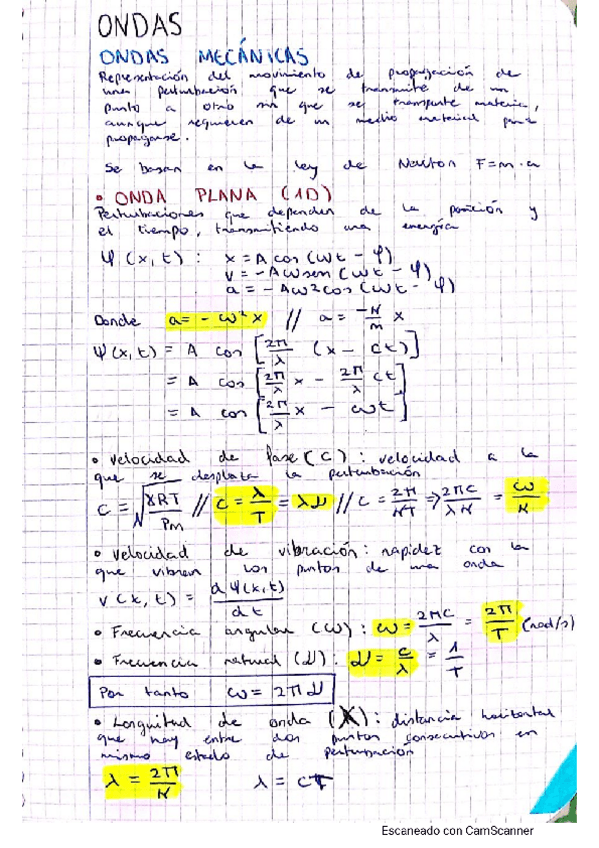 ONDAS
ONDAS MECÁNICAS
Representación del movimiento de propagación de
una perturbación que se transmite de un
punto a otro sin que se transporte materia,
aunque requieren de un medio material para
propagarse.
Se basan en la ley de Newton F=m·a
• ONDA PLANA (1D)
Perturbaciones que dependen de la posición y
el tiempo, transmitiendo una energía
Ψ(x,t): x = A cos (ωt - φ)
v = -Aω sen (ωt - φ)
a = -Aω2 cos (ωt - φ)
Donde a = -ω² x // a = -K/m x
Ψ(x,t) = A cos [2π/λ (x - ct)]
= A cos [2π/λ x - 2π/λ ct]
= A cos [2π/λ x - ωt]
• Velocidad de fase (c): velocidad a la
que se desplaza la perturbación
c = √(γRT/Pm) // c = λ/T = λν // c = 2π/KT ⇒ 2πc/λK = ω/K
• Velocidad de vibración: rapidez con la
que vibran los puntos de una onda
v(x,t) = dΨ(x,t)/dt
• Frecuencia angular (ω): ω = 2πc/λ = 2π/T (rad/s)
• Frecuencia natural (ν): ν = c/λ = 1/T
Por tanto ω = 2πν
• Longuitud de onda (λ): distancia horizontal
que hay entre dos puntos consecutivos en
mismo estado de perturbación
λ = 2π/K λ = cT
Escaneado con CamScanner